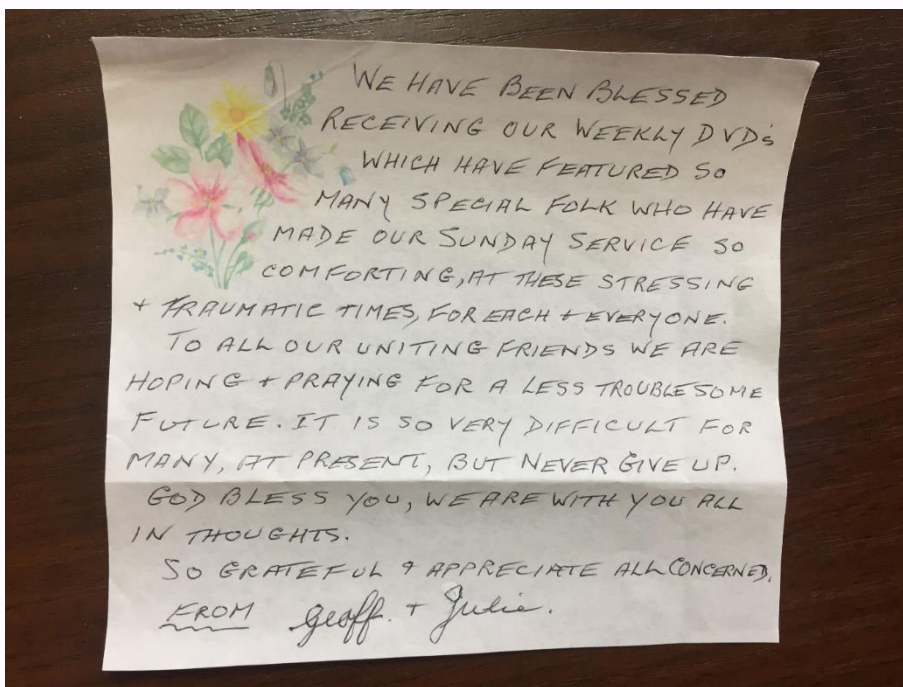 WE HAVE BEEN BLESSED
RECEIVING OUR WEEKLY DVD's
WHICH HAVE FEATURED SO
MANY SPECIAL FOLK WHO HAVE
MADE OUR SUNDAY SERVICE SO
COMFORTING, AT THESE STRESSING
+ TRAUMATIC TIMES, FOR EACH + EVERYONE.
TO ALL OUR UNITING FRIENDS WE ARE
HOPING + PRAYING FOR A LESS TROUBLESOME
FUTURE. IT IS SO VERY DIFFICULT FOR
MANY, AT PRESENT, BUT NEVER GIVE UP.
GOD BLESS YOU, WE ARE WITH YOU ALL
IN THOUGHTS.
SO GRATEFUL & APPRECIATE ALL CONCERNED.
FROM Geoff. + Julie.